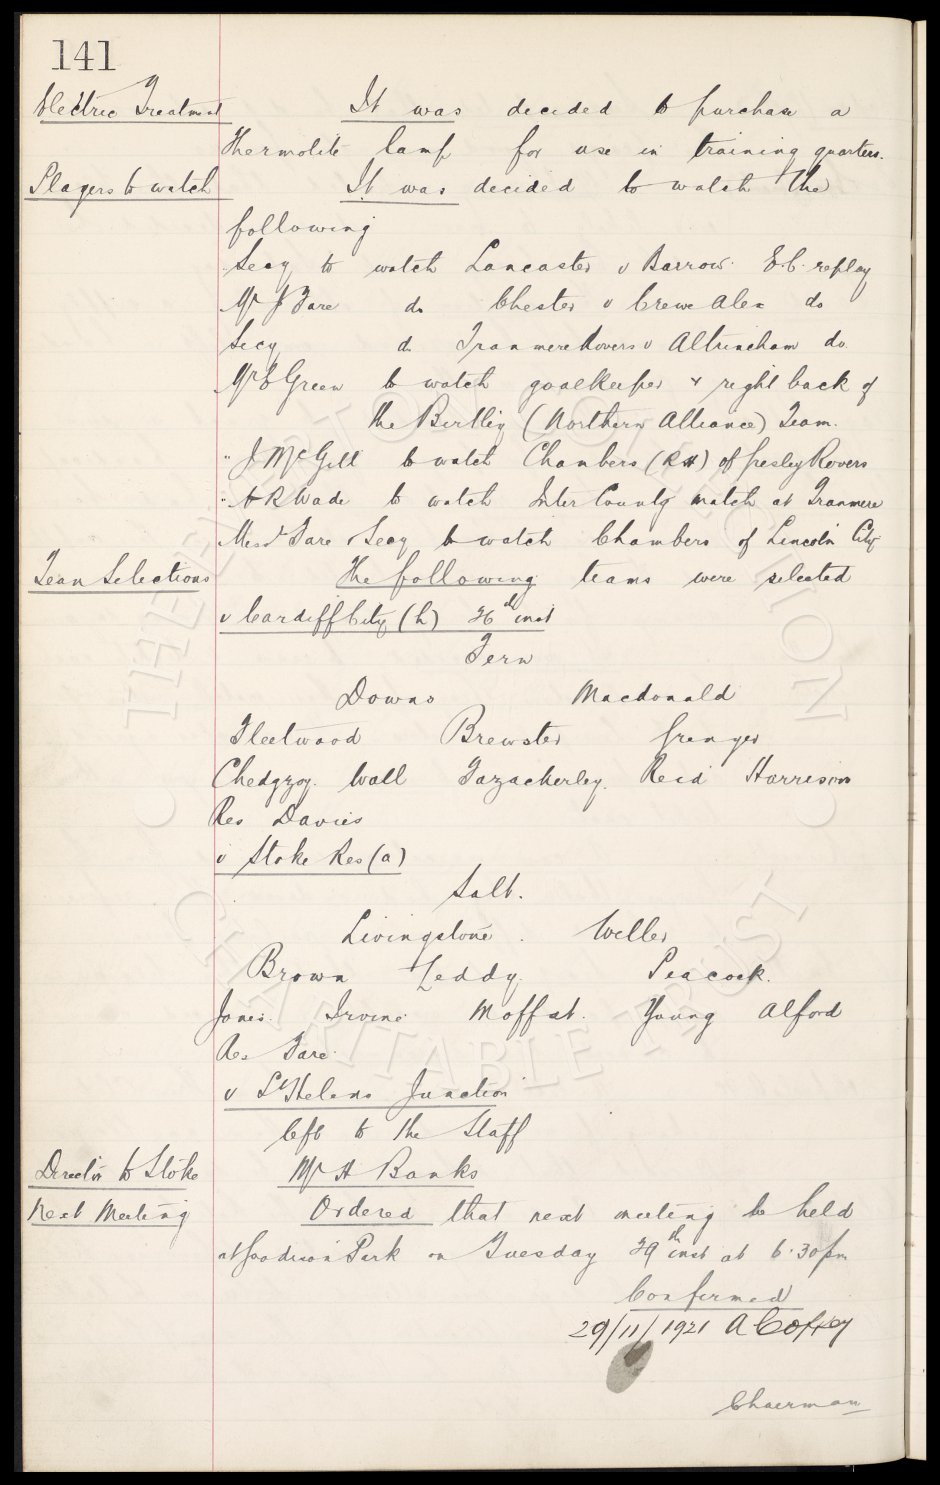 141
Electric Treatment It was decided to purchase a
Thermolite lamp for use in training quarters.
Players to watch It was decided to watch the
following
Secy to watch Lancaster v Barrow E.C. replay
Mr J Fare do Chester v Crewe Alex do
Secy do Tranmere Rovers v Altrincham do
Mr E Green to watch goalkeeper & right back of
the Birtley (Northern Alliance) Team.
" J McGill to watch Chambers (RH) of Gresley Rovers
" A R Wade to watch Inter County match at Tranmere
Messrs Fare & Secy to watch Chambers of Lincoln City
Team Selections The following teams were selected
v Cardiff City (h) 26th inst
Fern
Downs Macdonald
Fleetwood Brewster Grenyer
Chedgzoy. Wall Fazackerley. Reid Harrison
Res Davies
v Stoke Res (a)
Salt.
Livingstone. Weller
Brown Leddy. Peacock.
Jones. Irvine. Moffat. Young Alford
Res Fare.
v St Helens Junction
left to the Staff
Director to Stoke Mr H Banks
Next Meeting Ordered that next meeting be held
at Goodison Park on Tuesday 29th inst at 6.30pm
Confirmed
29/11/1921 A Coffey
Chairman
THE EVERTON COLLECTION
CHARITABLE TRUST